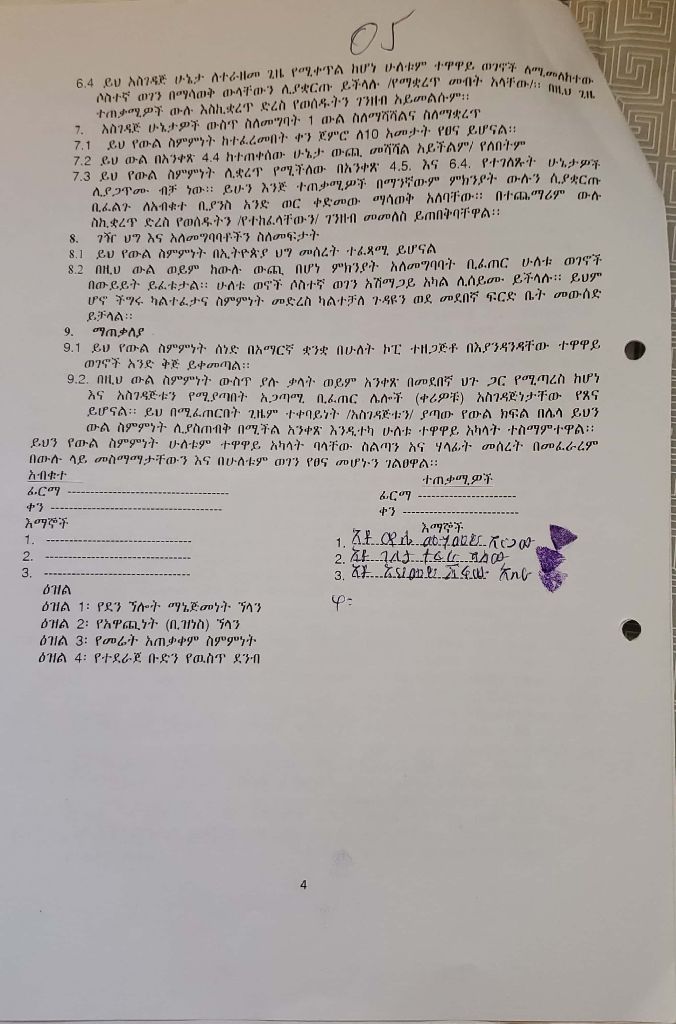 05
6.4 ይህ አስገዳጅ ሁኔታ ለተራዘመ ጊዜ የሚቀጥል ከሆነ ሁለቱም ተዋዋይ ወገኖች ለሚመለከተው
ሶስተኛ ወገን በማሳወቅ ውላቸውን ሊያቋርጡ ይችላሉ /የማቋረጥ መብት አላቸው/። በዚህ ጊዜ
ተጠቃሚዎች ውሉ እስኪቋረጥ ድረስ የወሰዱትን ገንዘብ አይመልሱም።
7. አስገዳጅ ሁኔታዎች ውስጥ ስለመግባት 1 ውል ስለማሻሻልና ስለማቋረጥ
7.1 ይህ የውል ስምምነት ከተፈረመበት ቀን ጀምሮ ለ10 አመታት የፀና ይሆናል።
7.2 ይህ ውል በአንቀጽ 4.4 ከተጠቀሰው ሁኔታ ውጪ መሻሻል አይችልም/ የለበትም
7.3 ይህ የውል ስምምነት ሊቋረጥ የሚችለው በአንቀጽ 4.5. እና 6.4. የተገለጹት ሁኔታዎች
ሲያጋጥሙ ብቻ ነው። ይሁን እንጅ ተጠቃሚዎች በማንኛውም ምክንያት ውሉን ሲያቋርጡ
ቢፈልጉ ለአብቁተ ቢያንስ አንድ ወር ቀድመው ማሳወቅ አለባቸው። በተጨማሪም ውሉ
ስኪቋረጥ ድረስ የወሰዱትን /የተከፈላቸውን/ ገንዘብ መመለስ ይጠበቅባቸዋል።
8. ገዥ ህግ እና አለመግባባቶችን ስለመፍታት
8.1 ይህ የውል ስምምነት በኢትዮጵያ ህግ መሰረት ተፈጻሚ ይሆናል
8.2 በዚህ ውል ወይም ከውሉ ውጪ በሆነ ምክንያት አለመግባባት ቢፈጠር ሁለቱ ወገኖች
በውይይት ይፈቱታል። ሁለቱ ወኖች ሶስተኛ ወገን አሸማጋይ አካል ሊሰይሙ ይችላሉ። ይህም
ሆኖ ችግሩ ካልተፈታና ስምምነት መድረስ ካልተቻለ ጉዳዩን ወደ መደበኛ ፍርድ ቤት መውሰድ
ይቻላል።
9. ማጠቃለያ
9.1 ይህ የውል ስምምነት ሰነድ በአማርኛ ቋንቋ በሁለት ኮፒ ተዘጋጅቶ በእያንዳንዳቸው ተዋዋይ
ወገኖች አንድ ቅጅ ይቀመጣል።
9.2. በዚህ ውል ስምምነት ውስጥ ያሉ ቃላት ወይም አንቀጽ በመደበኛ ህጉ ጋር የሚጣረስ ከሆነ
እና አስገዳጅቱን የሚያጣበት አጋጣሚ ቢፈጠር ሌሎች (ቀሪዎቹ) አስገዳጅነታቸው የጸና
ይሆናል። ይህ በሚፈጠርበት ጊዜም ተቀባይነት /አስገዳጅቱን/ ያጣው የውል ክፍል በሌላ ይህን
ውል ስምምነት ሊያስጠብቅ በሚችል አንቀጽ እንዲተካ ሁለቱ ተዋዋይ አካላት ተስማምተዋል።
ይህን የውል ስምምነት ሁለቱም ተዋዋይ አካላት ባላቸው ስልጣን እና ሃላፊት መሰረት በመፈራረም
በውሉ ላይ መስማማታቸውን እና በሁለቱም ወገን የፀና መሆኑን ገልፀዋል።
አብቁተ
ተጠቃሚዎች
ፊርማ ----------------------------
ፊርማ -----------------
ቀን -----------------------------
ቀን --------------------
እማኞች
እማኞች
1. -------------------------
2. -------------------------
3. -------------------------
1.
2.
3.
ዕዝል
ዕዝል 1፡ የደን ኘሎት ማኔጅመነት ኘላን
ዕዝል 2፡ የአዋጪነት (ቢዝነስ) ኘላን
ዕዝል 3፡ የመሬት አጠቃቀም ስምምነት
ዕዝል 4፡ የተደራጀ ቡድን የዉስጥ ደንብ
4